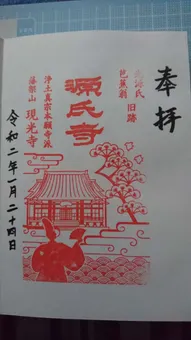 奉拝
源氏
芭蕉
旧跡
源氏寺
浄土真宗本願寺派
藩架山 現光寺
令和二年一月二十四日